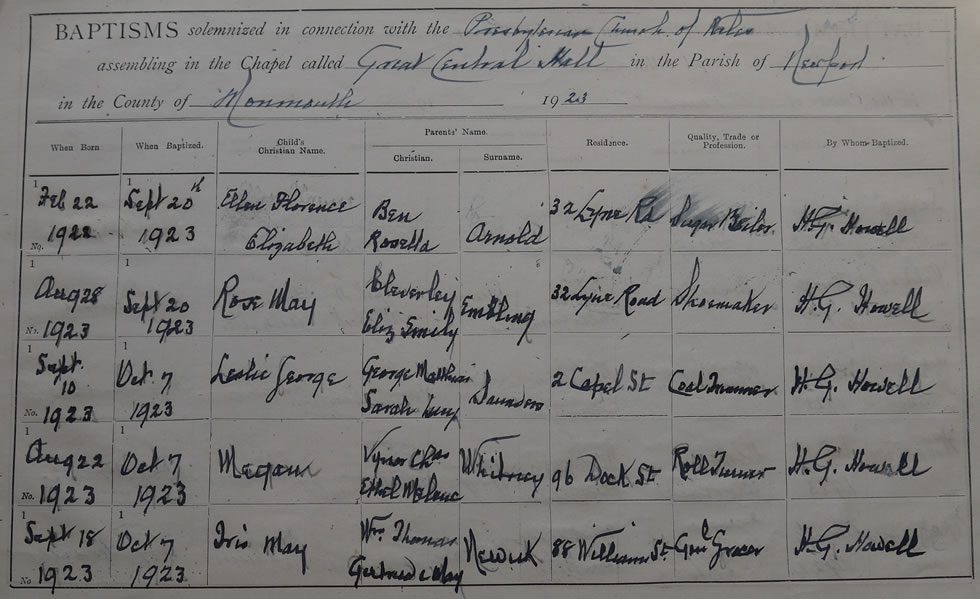 BAPTISMS solemnized in connection with the Presbyterian Church of Wales
assembling in the Chapel called Great Central Hall in the Parish of Newport
in the County of Monmouth 1923
When Born When Baptized. Child's Christian Name. Parents' Name. Christian. Surname. Residence. Quality, Trade or Profession. By Whom Baptized.
1 Feb 22 1 Sept 20th Ellen Florence Ben 32 Lyne Rd Sugar Boiler H.G. Howell
No. 1922 1923 Elizabeth Rosella Arnold
1 Aug 28 1 Sept 20 Rose May Cleverley Embling 32 Lyne Road Shoemaker H.G. Howell
No. 1923 1923 Eliz Emily
1 Sept. 10 1 Oct 7 Leslie George George Matthew Saunders 2 Capel St Coal Trimmer H.G. Howell
No. 1923 1923 Sarah Lucy
1 Aug 22 1 Oct 7 Megan Chas Whitney 96 Dock St Roll Turner H.G. Howell
No. 1923 1923 Ethel
1 Sept 18 1 Oct 7 Iris May Wm. Thomas Newick 88 William St. Genl Grocer H.G. Howell
No 1923 1923 Gertrude May